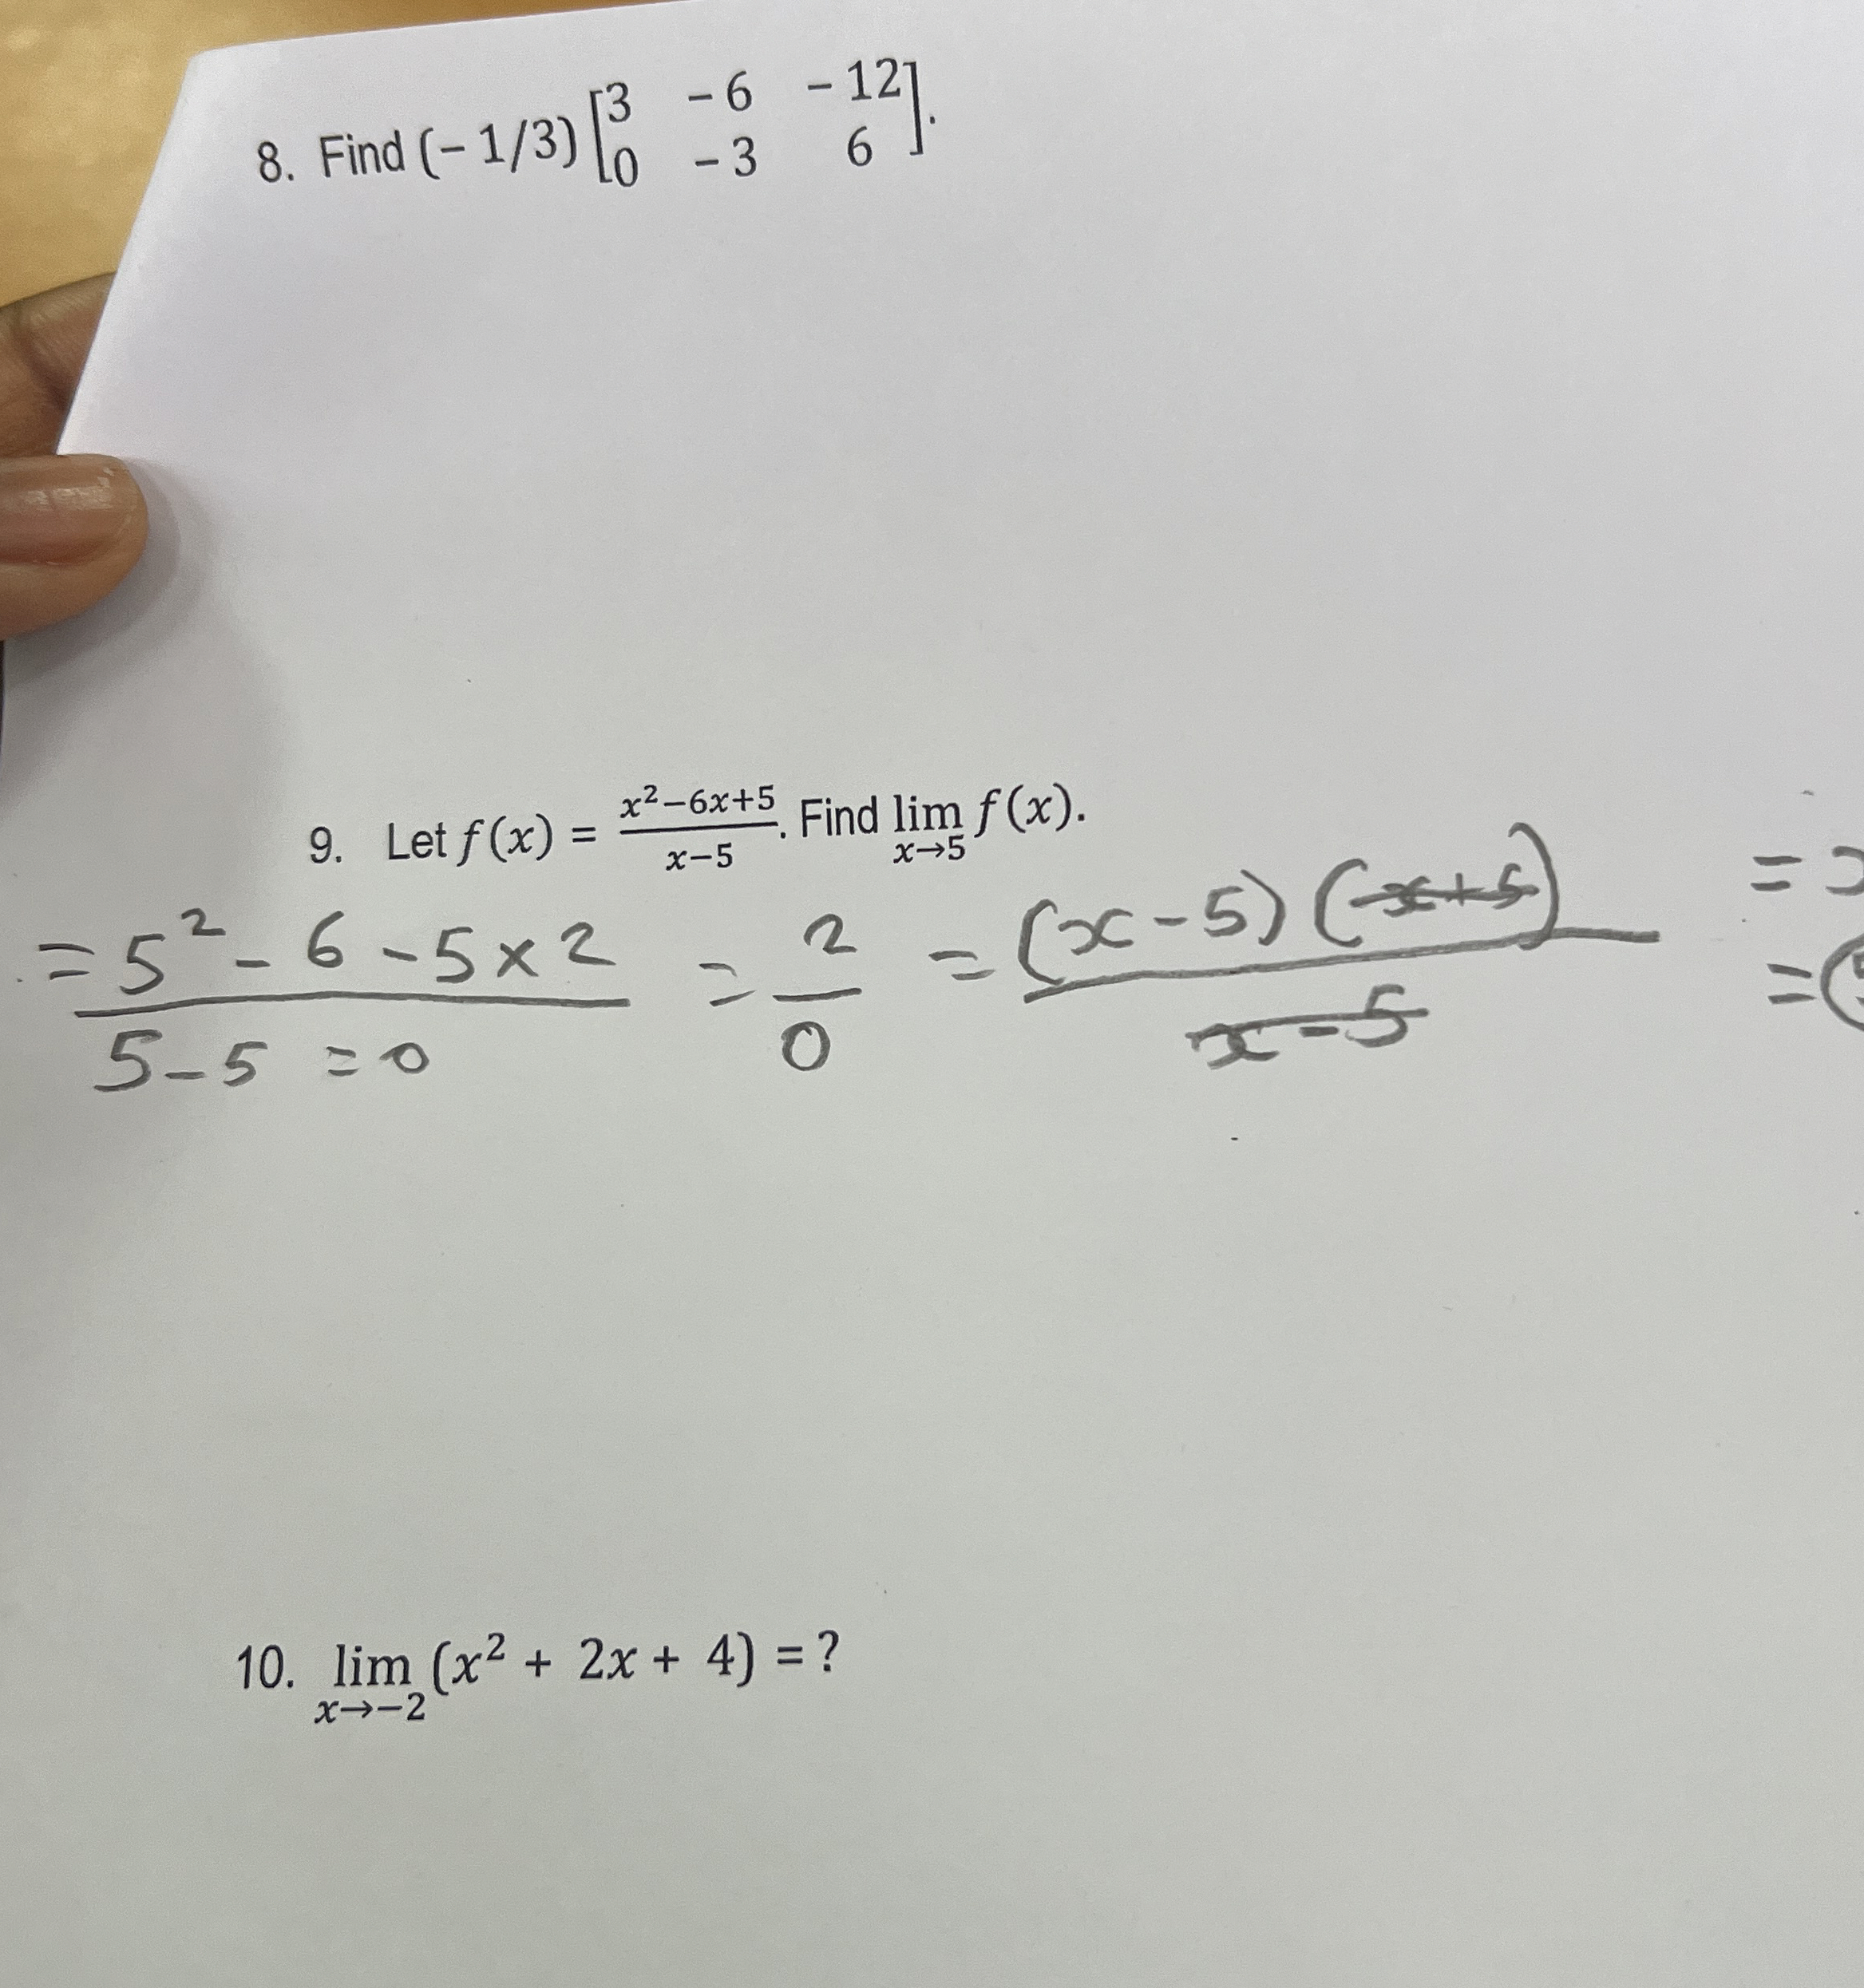 8. Find (− 1/3) [3 − 6 − 12
0 − 3 6].
9. Let f(x) = (x²−6x+5)/(x−5). Find lim x→5 f(x).
= (5² − 6 − 5 × 2)/(5 − 5 = 0) = 2/0 = (x − 5)(x + 5)/(x − 5) =
=
10. lim x→−2 (x² + 2x + 4) = ?